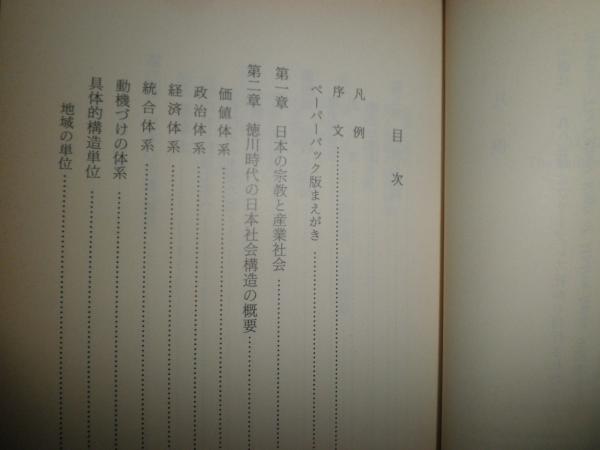 目次
凡例
序文
ペーパーバック版まえがき
第一章 日本の宗教と産業社会
第二章 徳川時代の日本社会構造の概要
価値体系
政治体系
経済体系
統合体系
動機づけの体系
具体的構造単位
地域の単位